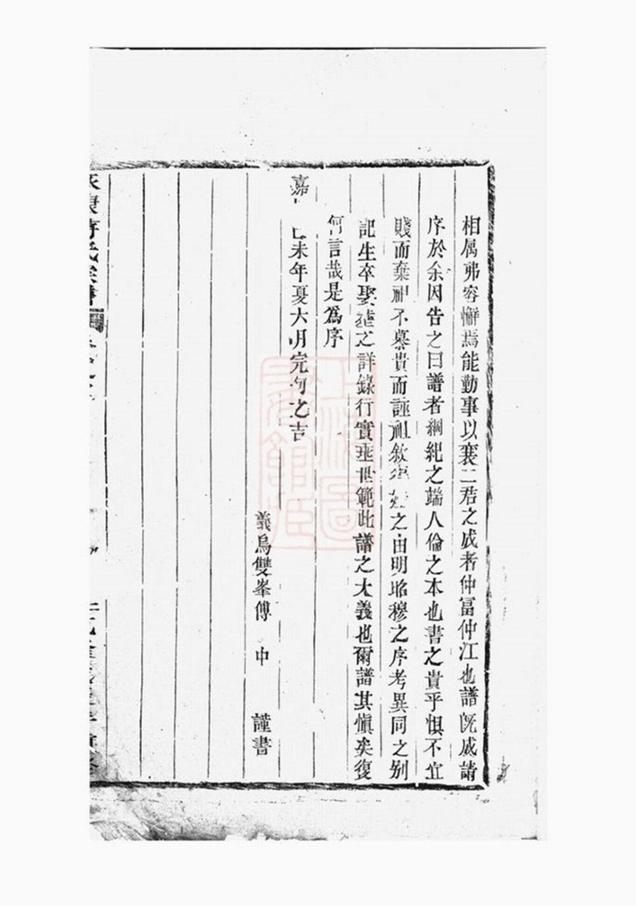 相属弗容懈焉能勤事以襄二君之成者仲富仲江也譜既成請
序於余因告之曰譜者綱紀之端人倫之本也書之貴乎慎不宜
賤而棄祖不慕貴而誣祖敘之由明昭穆之序考異同之别
記生卒娶塟之詳錄行實垂世範此譜之大義也爾譜其愼矣復
何言哉是為序
嘉 己未年夏六月完句之吉
義烏雙峯傅 中 謹書